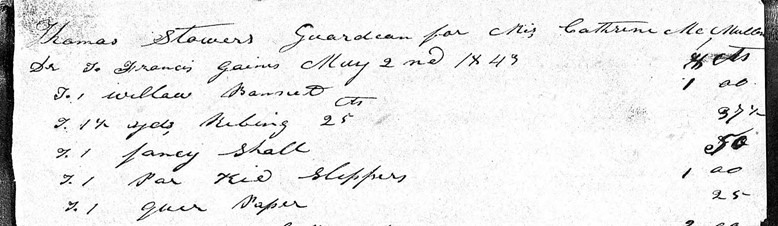 Thomas Stowers Guardean for Mis Cathrine McMullen
Dr To Francis Gains May 2nd 1843 $ cts
To 1 willow Bonnett 1 00
To 1½ yds Ribing 25 cts 37½
To 1 fancy Shall 50
To 1 Par Kid Slippers 1 00
To 1 quir Paper 25